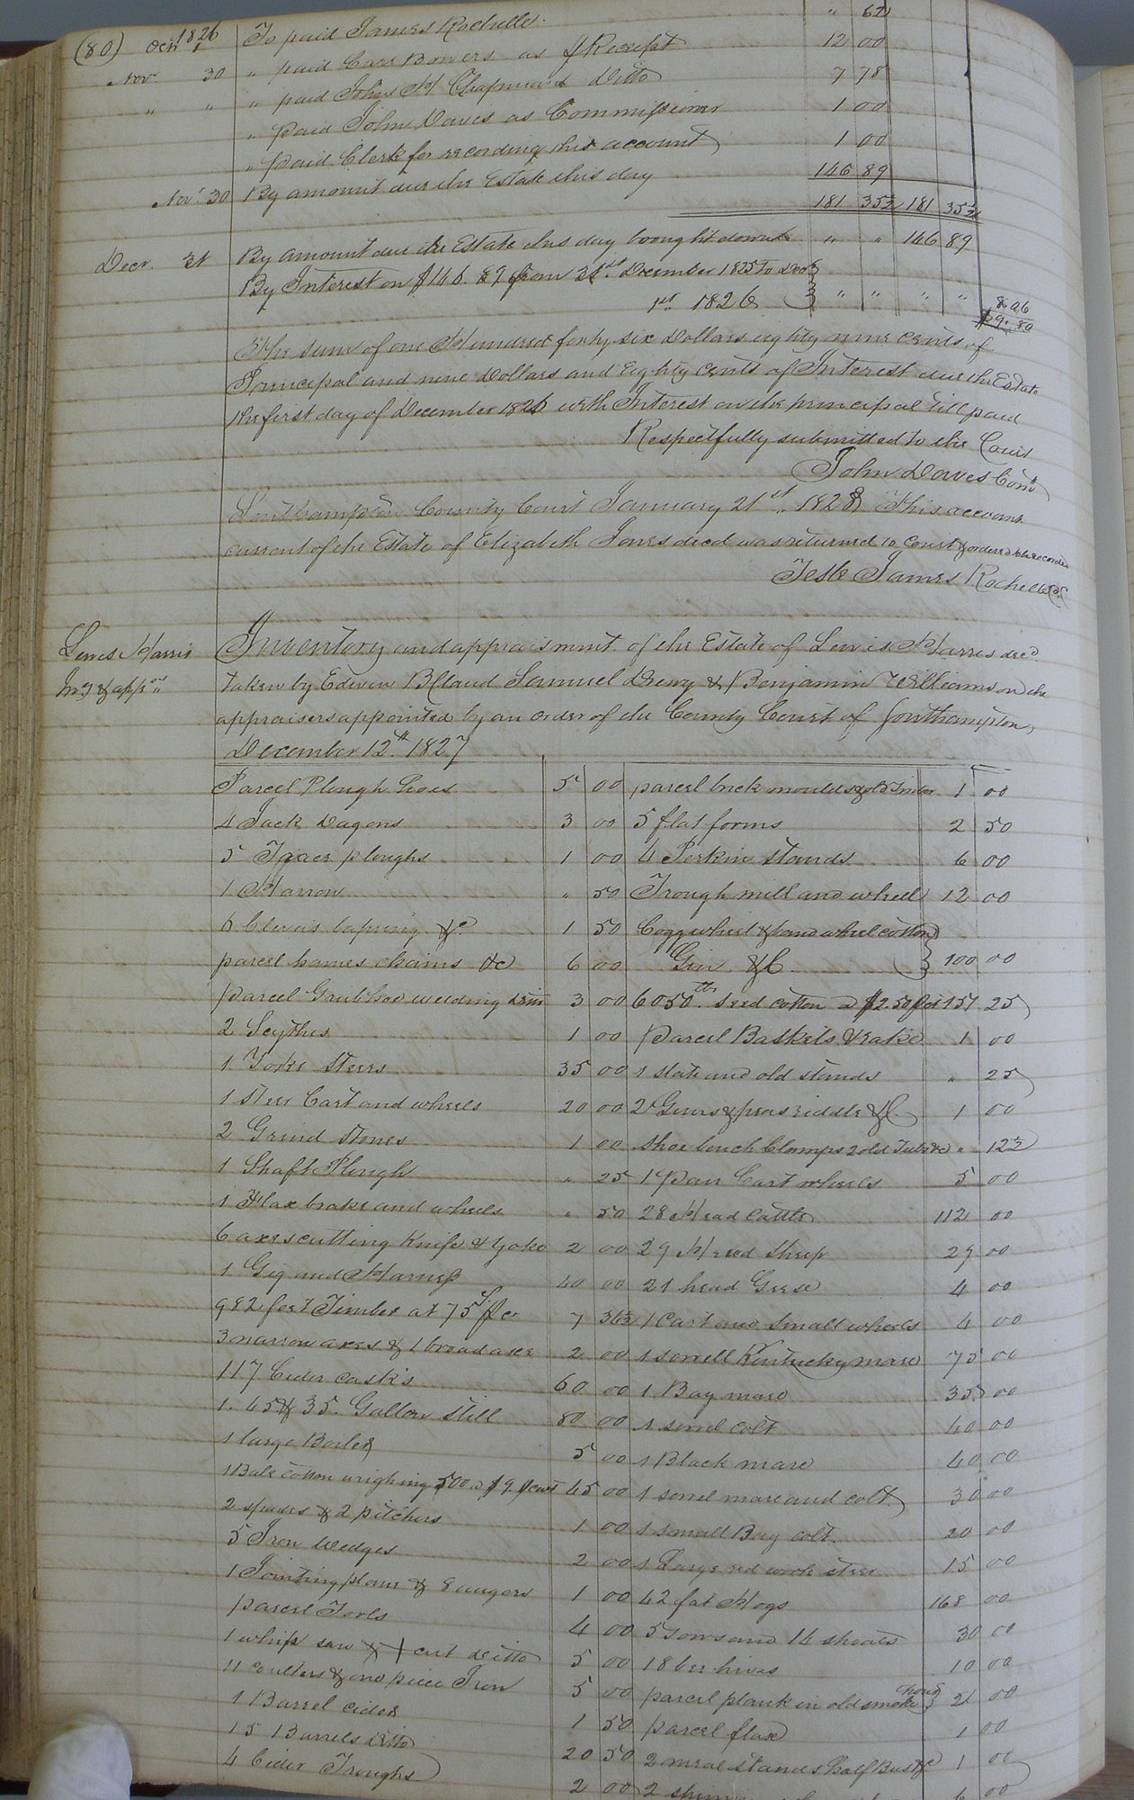 (80) Octr 1826 To paid James Rochelle " 62½
" Nov 30 " paid Carr Bowers as pr Receipt 12 00
" " " paid John H Chapman Ditto 7 78
" paid John Davis as Commissioner 1 00
" paid Clerk for recording this account 1 00
Nov. 30 By amount due the Estate this day 146 89
181 35½ 181 35½
Decr. 31 By amount due the Estate this day brought down " " 146 89
By Interest on $146.89 from 31st December 1825 to Decr
1st 1826 " " " " 8.06
$9.80
The sum of one Hundred forty six Dollars eighty nine cents of
Principal and nine Dollars and Eighty cents of Interest due the Estate
the first day of December 1826 with Interest on the principal till paid
Respectfully submitted to the Court
John Daves Comr
Southampton County Court January 21st. 1828 This account
current of the Estate of Elizabeth Jones decd was returned to Court & ordered to be recorded
Teste James Rochelle Cl
Lewis Harris Inventory and appraisment of the Estate of Lewis Harris decd.
Inv & appt taken by Edwin Bland Samuel Drewry & Benjamin Williamson the
appraisers appointed by an order of the County Court of Southampton,
December 12th 1827
Parcel Plough hoes 5 00 parcel brick moulds & old Tinder 1 00
4 Jack Dagons 3 00 5 flat forms 2 50
5 Trace ploughs 1 00 4 Perkin stands 6 00
1 Harrow " 50 Trough mill and wheel 12 00
6 Clevis lapring &c 1 50 Cogg wheel & band wheel cotton
parcel hames chains &c 6 00 Gin &C 100 00
parcel Grub hoes weeding ditto 3 00 6050 lbs seed cotton @ $2.50 pr Ct 151 25
2 Scythes 1 00 parcel Baskets & rake 1 00
1 Yoke Steers 35 00 1 slate and old stands " 25
1 steer Cart and wheels 20 00 2 Gums & peas riddle &C 1 00
2 Grind Stones 1 00 shoe bench Clamps 2 old Tubs &c " 12½
1 Shaft Plough " 25 1 Pair Cart wheels 5 00
1 Flax brake and wheels " 50 28 Head Cattle 112 00
6 axes cutting Knife & Yoke 2 00 29 Head Sheep 29 00
1 Gig and Harness 40 00 21 head Geese 4 00
982 feet Timber at 75 pr C 7 36½ 1 Cart and small wheels 4 00
3 narrow axes & 1 broad axe 2 00 1 sorrell Kentucky mare 75 00
117 Cider casks 60 00 1 Bay mare 35 00
1. 45 & 35 Gallon Still 80 00 1 sorrel colt 40 00
1 large Boiler 5 00 1 Black mare 40 00
1 Bale cotton weighing 500 @ $9 pr cwt 45 00 1 sorrel mare and colt 30 00
2 spades & 2 pitchers 1 00 1 small Bay colt 20 00
5 Iron Wedges 2 00 1 Large red work steer 15 00
1 Jointing plane & Gaugers 1 00 42 fat Hogs 168 00
parcel Tools 4 00 5 sows and 14 shoats 30 00
1 whip saw & X cut ditto 5 00 18 bee hives 10 00
11 coulters & one piece Iron 5 00 parcel plank in old smoke house 2 00
1 Barrel cider 1 50 parcel flax 1 00
15 Barrels ditto 20 50 2 meal stands half Bus &c 1 00
4 Cider Troughs 2 00 2 6 00